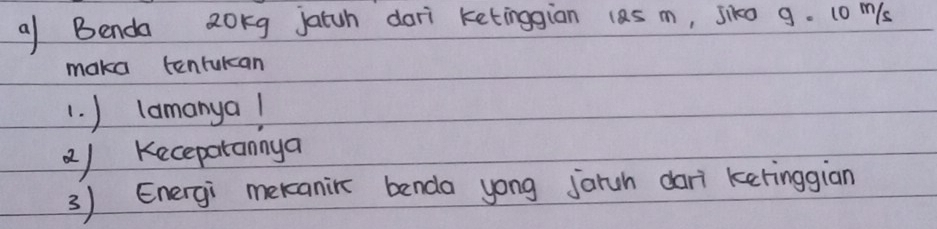 a) Benda 20kg jatuh dari ketinggian 125 m, jika g = 10 m/s
maka tentukan
1.) lamanya !
2) Kecepatannya
3) Energi mekanik benda yang jatuh dari ketinggian